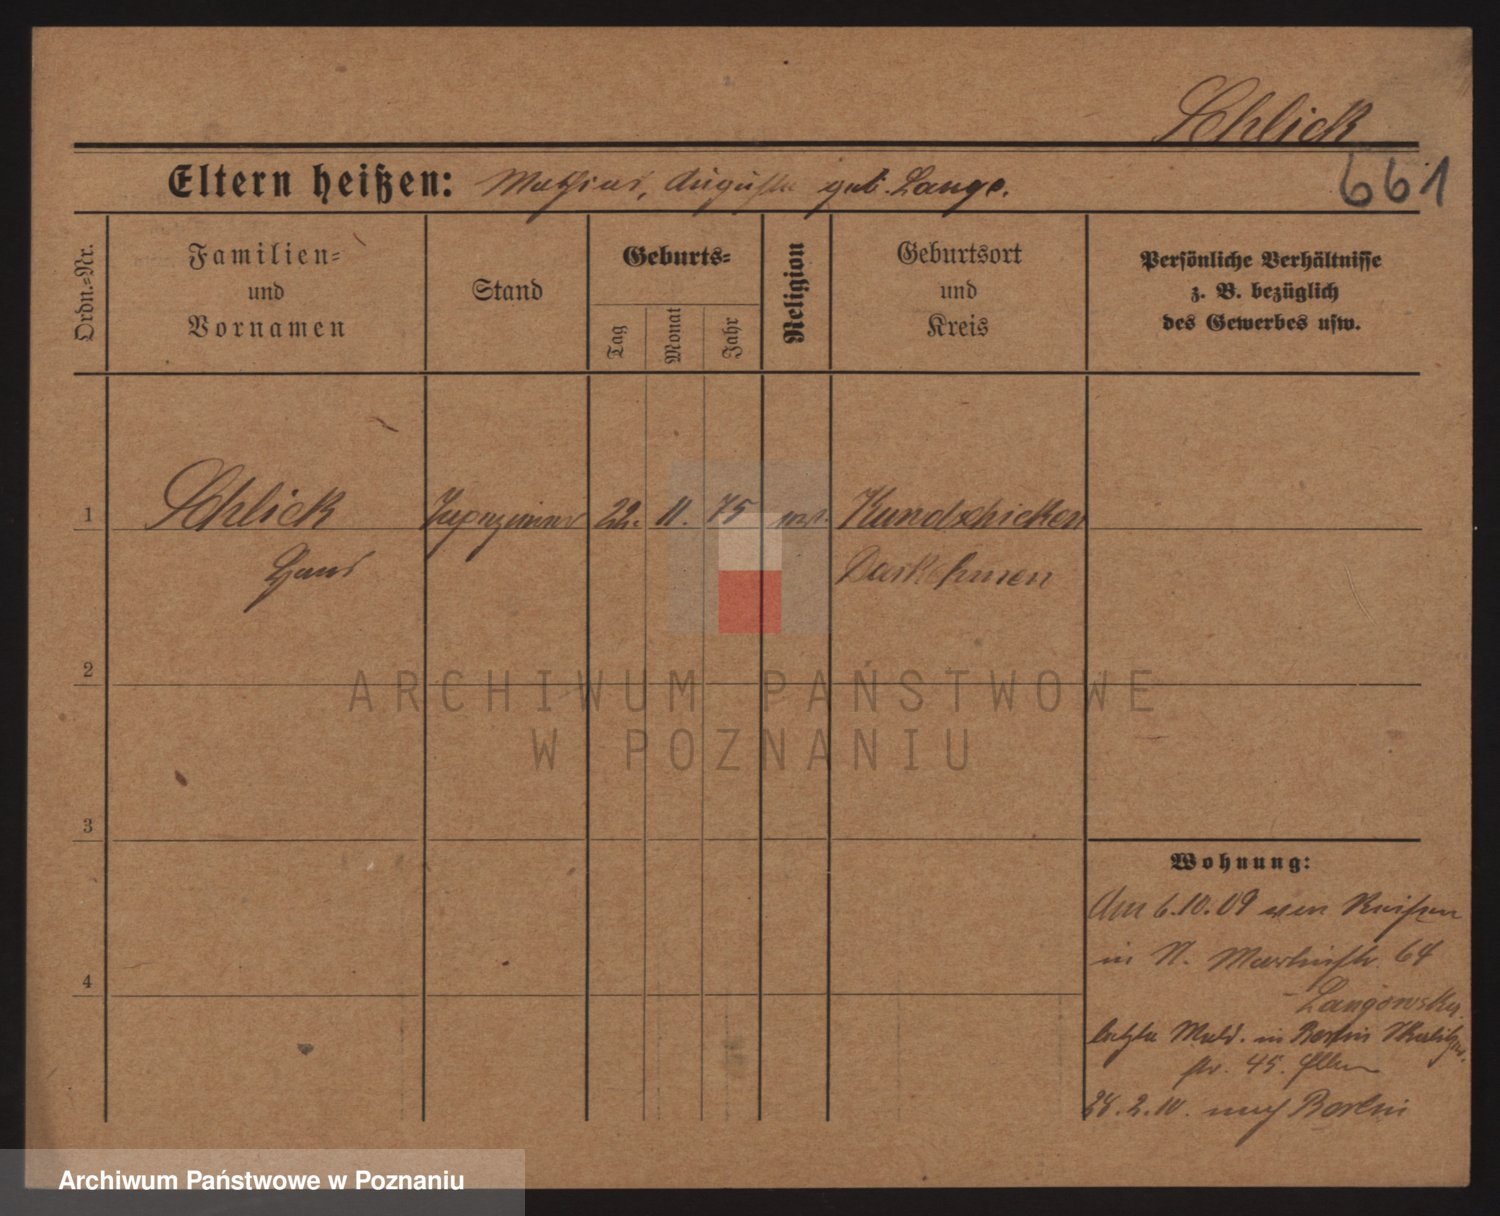 Schlick
661
Eltern heißen: Mathias, Auguste geb. Lange.
Ordn.=Nr.
Familien=
und
Vornamen
Stand
Geburts=
Tag
Monat
Jahr
Religion
Geburtsort
und
Kreis
Persönliche Verhältnisse
z. B. bezüglich
des Gewerbes usw.
1 Schlick 22. 11. 75 Kundschicken
Hans Darkehmen
2
ARCHIWUM PAŃSTWOWE
W POZNANIU
3
Wohnung:
Am 6.10.09 von Reisen
in N. Martinstr. 64
4
Langowsky.
letzte Meld. in Berlin
str. 45.
28.2.10. nach Berlin
Archiwum Państwowe w Poznaniu